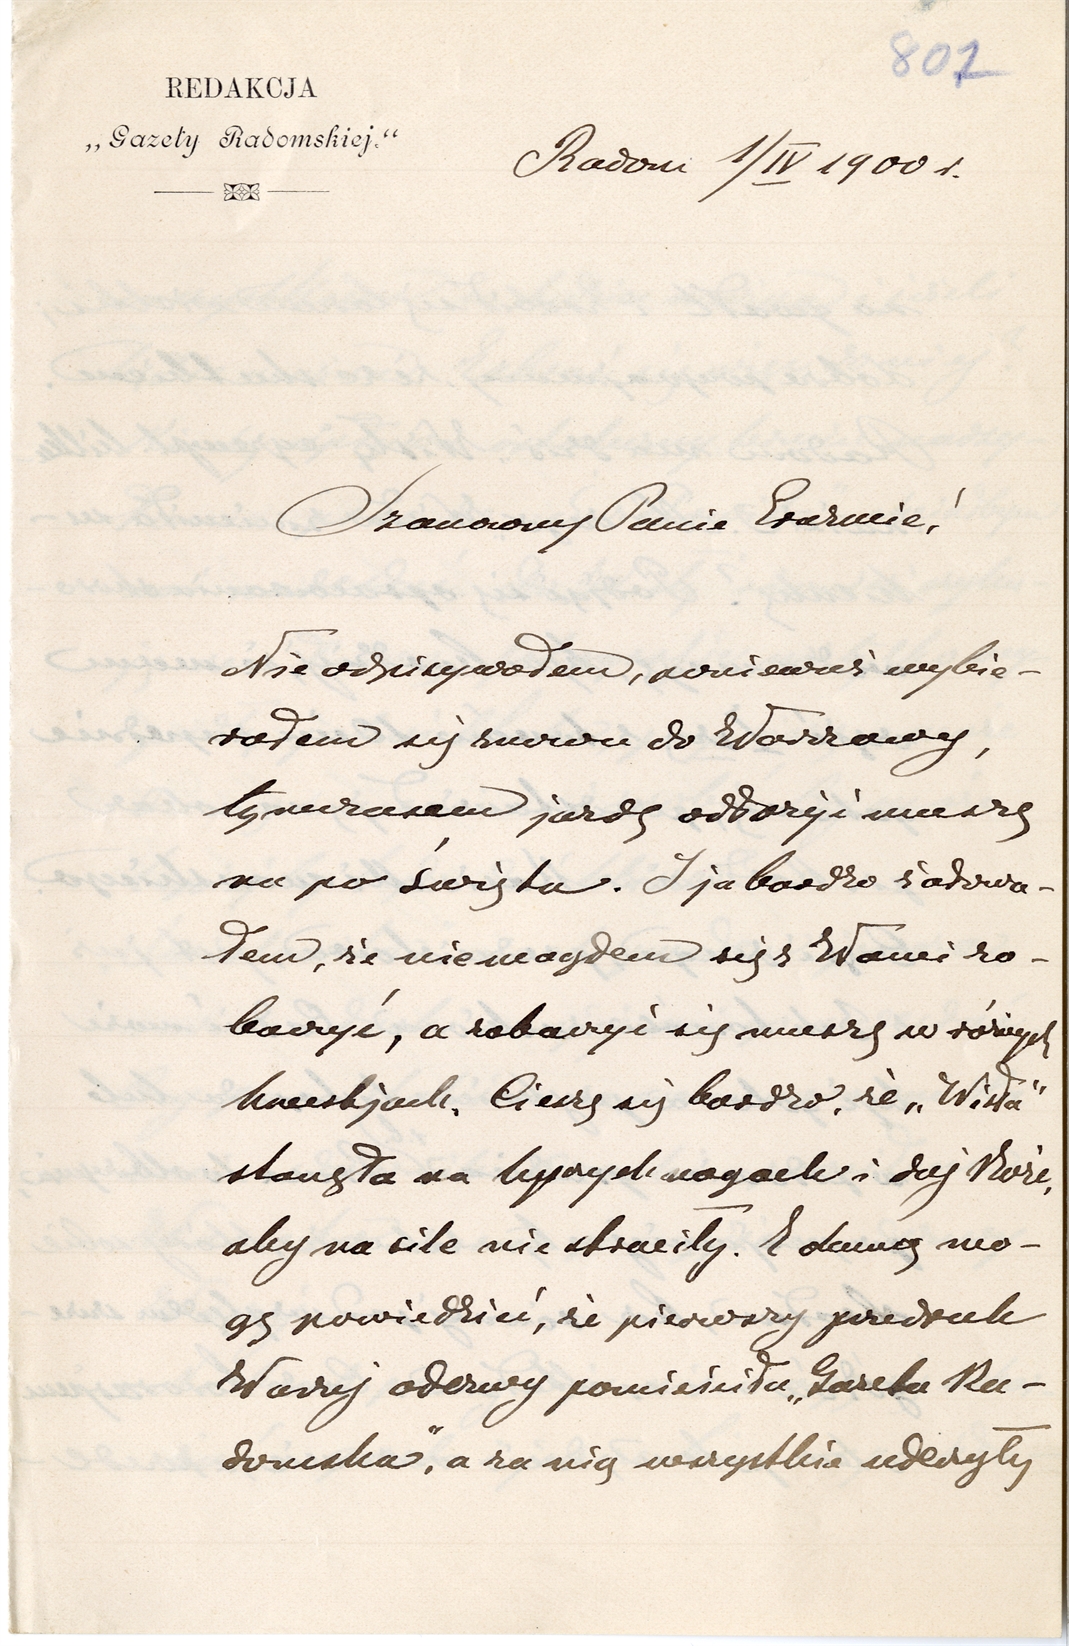 807
REDAKCJA
„Gazety Radomskiej.“
Radom 1/IV 1900 r.
Szanowny Panie Erazmie!
Nie odpisywałem, ponieważ wybie-
rałem się znowu do Warszawy,
tymczasem jazdę odłożyć muszę
na po święta. I ja bardzo żałowa-
łem, że nie mogłem się z Wami zo-
baczyć, a zobaczyć się muszę w różnych
kwestjach. Cieszę się bardzo, że „Wisła“
stanęła na lepszych nogach i daj Boże,
aby na sile nie straciły. Z dumą mo-
gę powiedzieć, że pierwszy przedruk
Waszej odezwy pomieściła „Gazeta Ra-
domska“, a za nią wszystkie uderzyły